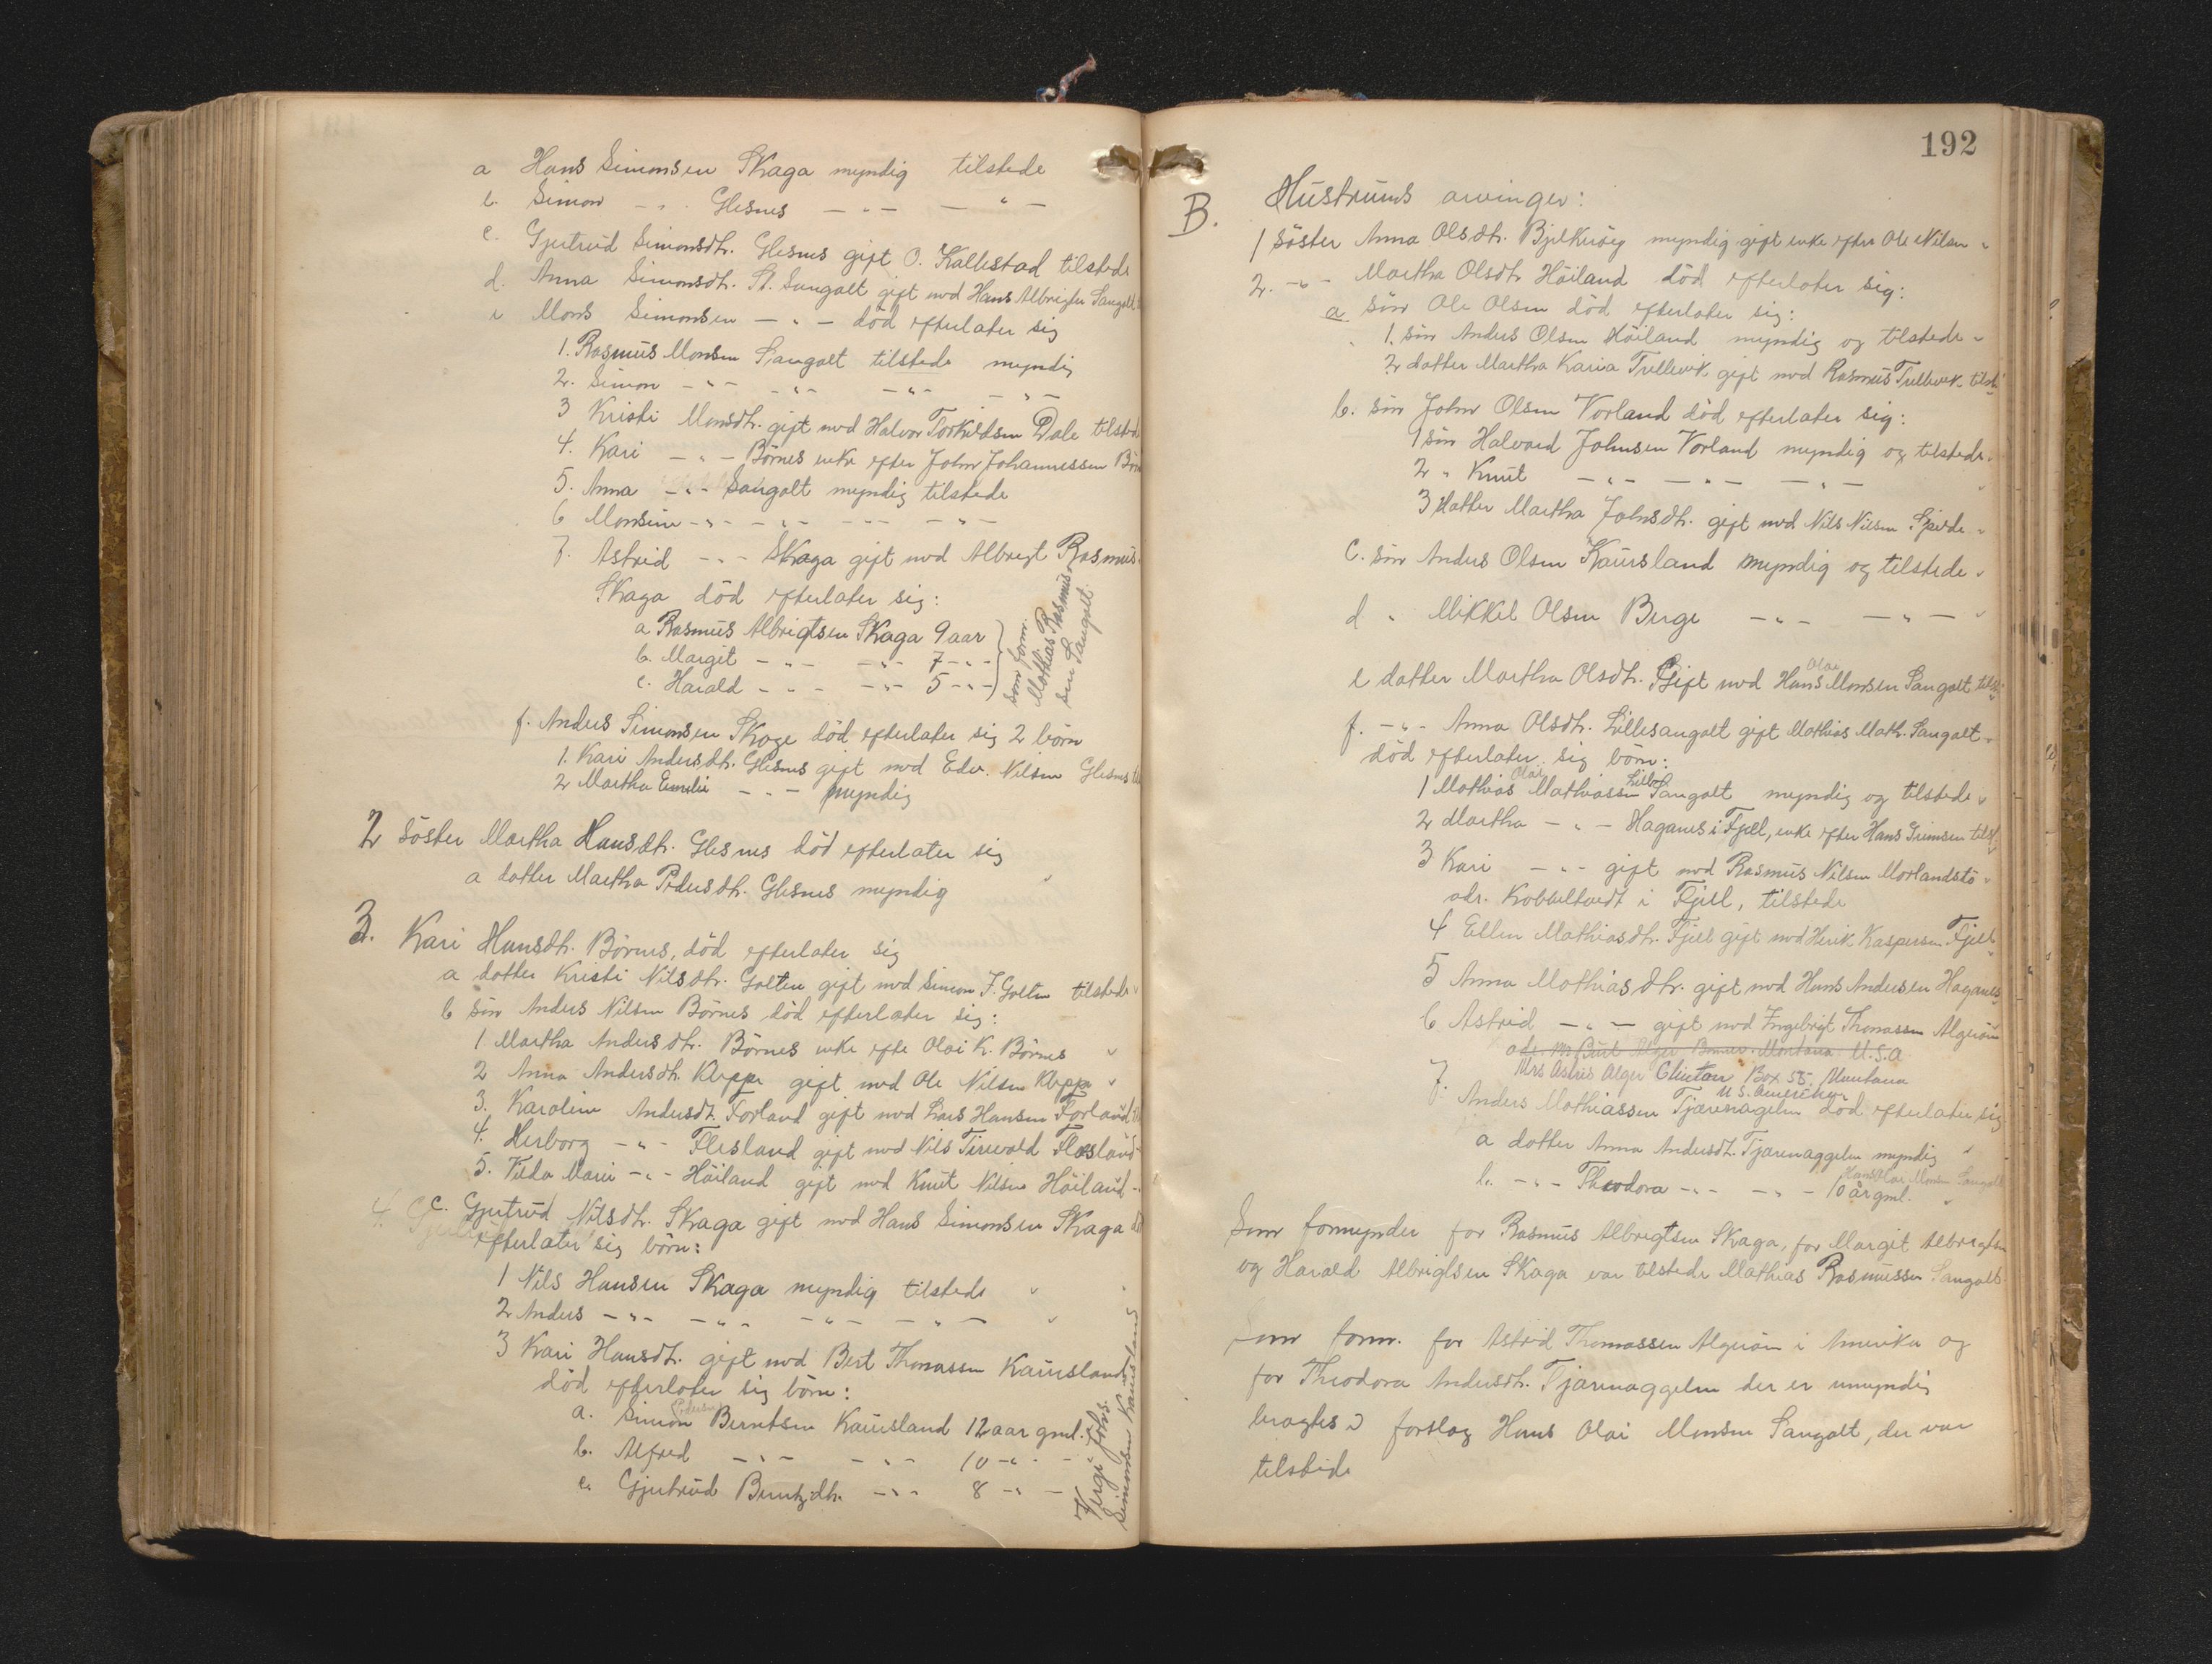 a Hans Simonsen Skaga myndig tilstede
b. Simon - " - Glesnes - " - - " -
c. Gjertrud Simonsdtr. Glesnes gift O. Kallestad tilstede
d. Anna Simonsdt. St. Sangolt gift med Hans Albrigtsen Sangolt
e Mons Simonsen - " - död efterlater sig
1. Rasmus Monsen Sangolt tilstede myndig
2. Simon - " - - " - - " - - " -
3 Kristi Monsdtr. gift med Halvor Torkildsen Dale tilstede
4. Kari - " - Börnes enke efter John Johannessen Börn
5. Anna - " - Sangolt myndig tilstede
6 Monsine - " - - " - - " - - " -
7. Astrid - " - Skaga gift med Albregt Rasmus
Skaga död efterlater sig:
a Rasmus Albrigtsen Skaga 9 aar
b. Margit - " - - " - 7 - " -
c. Harald - " - - " - 5 - " -
som form.
Mathias Rasmus
sen Sangolt
f. Anders Simonsen Skoge död efterlater sig 2 börn
1. Kari Andersdtr. Glesnes gift med Edv. Nilsen Glesnes
2 Martha Emilie - " - myndig
2 söster Martha Hansdtr. Glesnes död efterlater sig
a datter Martha Pedersdtr. Glesnes myndig
3. Kari Hansdtr. Börnes, död efterlater sig
a datter Kristi Nilsdtr. Golten gift med Simon J. Golten tilstede
b sön Anders Nilsen Börnes död efterlater sig:
1 Martha Andersdtr. Börnes enke efter Olai K. Börnes
2 Anna Andersdtr. Kleppe gift med Ole Nilsen Kleppe
3. Karoline Andersdt. Forland gift med Lars Hansen Forland
4. Herborg - " - Flesland gift med Nils Flesland
5. Marie - " - Höiland gift med Knut Nilsen Höiland
4. c. Gjertrud Nilsdtr. Skaga gift med Hans Simonsen Skaga
efterlater sig börn:
1 Nils Hansen Skaga myndig tilstede
2 Anders - " - - " - - " - - " -
3 Kari Hansdtr. gift med Bert Thomassen Kausland
död efterlater sig börn:
a. Simon Berntsen Kausland 12 aar gml.
b. Alfred - " - - " - 10 - " -
c. Gjertrud Berntsdtr. - " - 8 - " -
Verge Johs.
Simonsen Kausland
192
B. Hustruens arvinger:
1 söster Anna Olsdtr. Bjelkeröey myndig gift enke efter Ole Nilsen
2. - " - Martha Olsdtr Höiland död efterlater sig:
a sön Ole Olsen död efterlater sig:
1. sön Anders Olsen Höiland myndig og tilstede
2 datter Martha Karia Trellevik gift med Rasmus Trellevik tilst.
b. sön John Olsen Vorland död efterlater sig:
1 sön Halvard Johnsen Vorland myndig og tilstede
2 " Knut - " - - " - - " -
3 datter Martha Johsdtr. gift med Nils Nilsen
c. sön Anders Olsen Kausland myndig og tilstede
d " Mikkel Olsen Berge - " - - " -
e datter Martha Olsdtr. gift med Hans Olai Monsen Sangolt
f. - " - Anna Olsdtr. Lillesangolt gift Mathias Math. Sangolt
död efterlater sig börn:
1 Mathias Olai Mathiassen Lille Sangolt myndig og tilstede
2 Martha - " - Haganes i Fjell, enke efter Hans Grimsen tilst.
3 Kari - " - gift med Rasmus Nilsen Morlandstö
adr. Kobbeltvedt i Fjell, tilstede
4 Ellen Mathiasdtr. Fjell gift med Herik Kaspersen Fjell
5 Anna Mathiasdtr. gift med Hans Andersen Haganes
6 Astrid - " - gift med Ingebrigt Thomassen Algeröen
adr. Mr Burt Alger Bonner Montana U.S.A
Mrs Astrid Alger Clinton Box 55. Montana
U S. Amerika
7. Anders Mathiassen Tjærenagelen död efterlater sig
a datter Anna Andersdt. Tjærenaggelen myndig
Hans Olai Monsen Sangolt
b. - " - Theodora - " - - " - 10 år gml.
Som formynder for Rasmus Albregtsen Skaga, for Margit Albregtsen
og Harald Albrigtsen Skaga var tilstede Mathias Rasmussen Sangolt
Som form. for Astrid Thomassen Algeröen i Amerika og
for Theodora Andersdtr. Tjærenaggelen der er umyndig
bragtes i forslag Hans Olai Monsen Sangolt, der var
tilstede